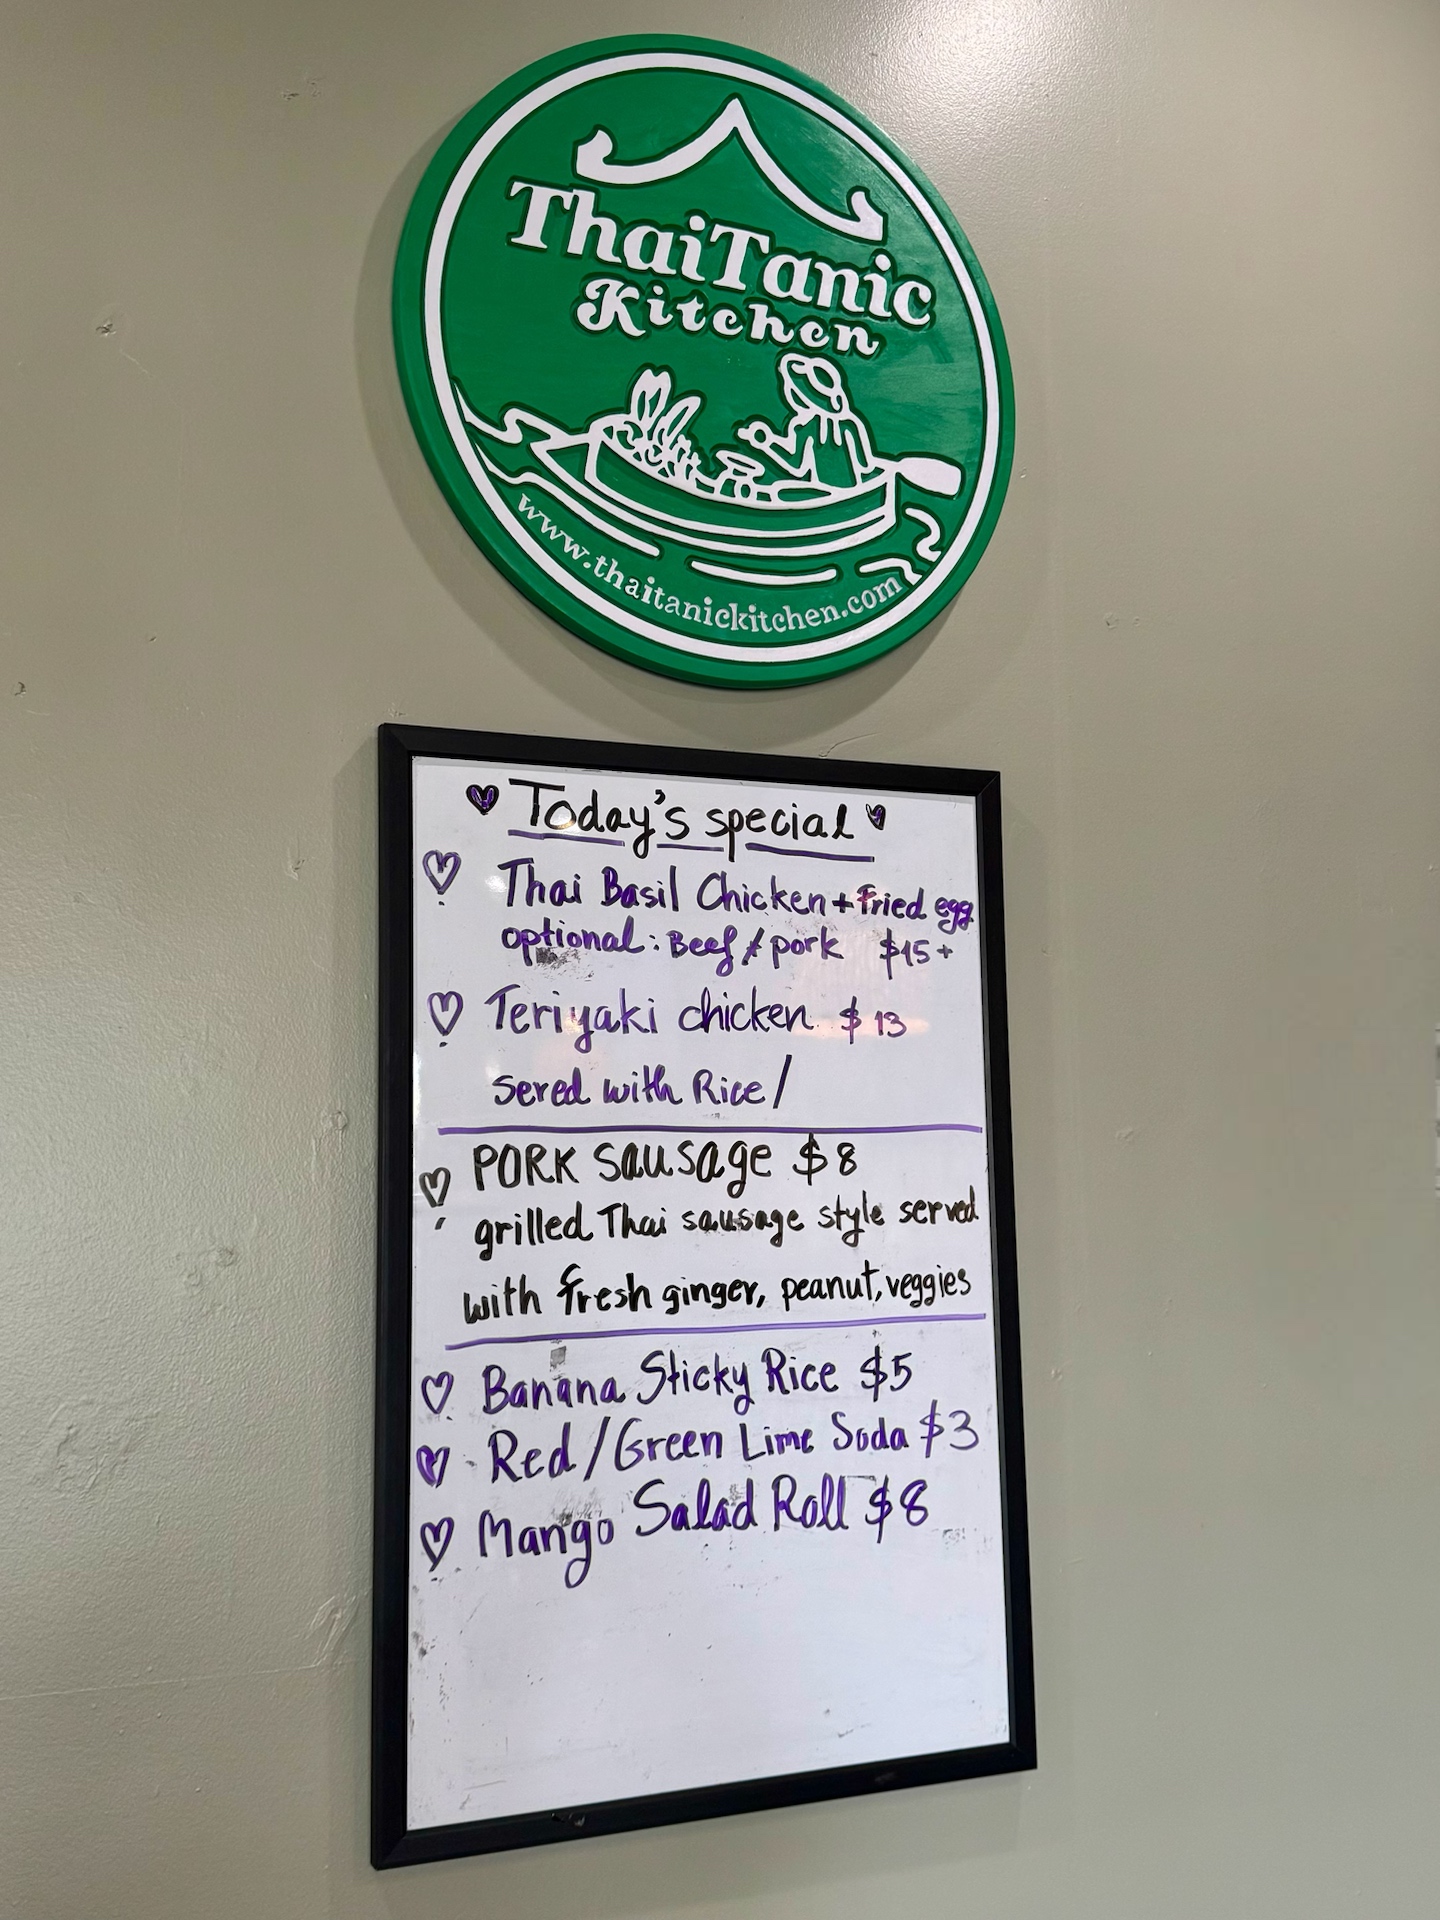 ThaiTanic
Kitchen
www.thaitanickitchen.com
Today's special
Thai Basil Chicken + Fried egg
optional: Beef / pork $15+
Teriyaki chicken $13
sered with Rice/
PORK sausage $8
grilled Thai sausage style served
with fresh ginger, peanut, veggies
Banana Sticky Rice $5
Red/Green Lime Soda $3
Mango Salad Roll $8